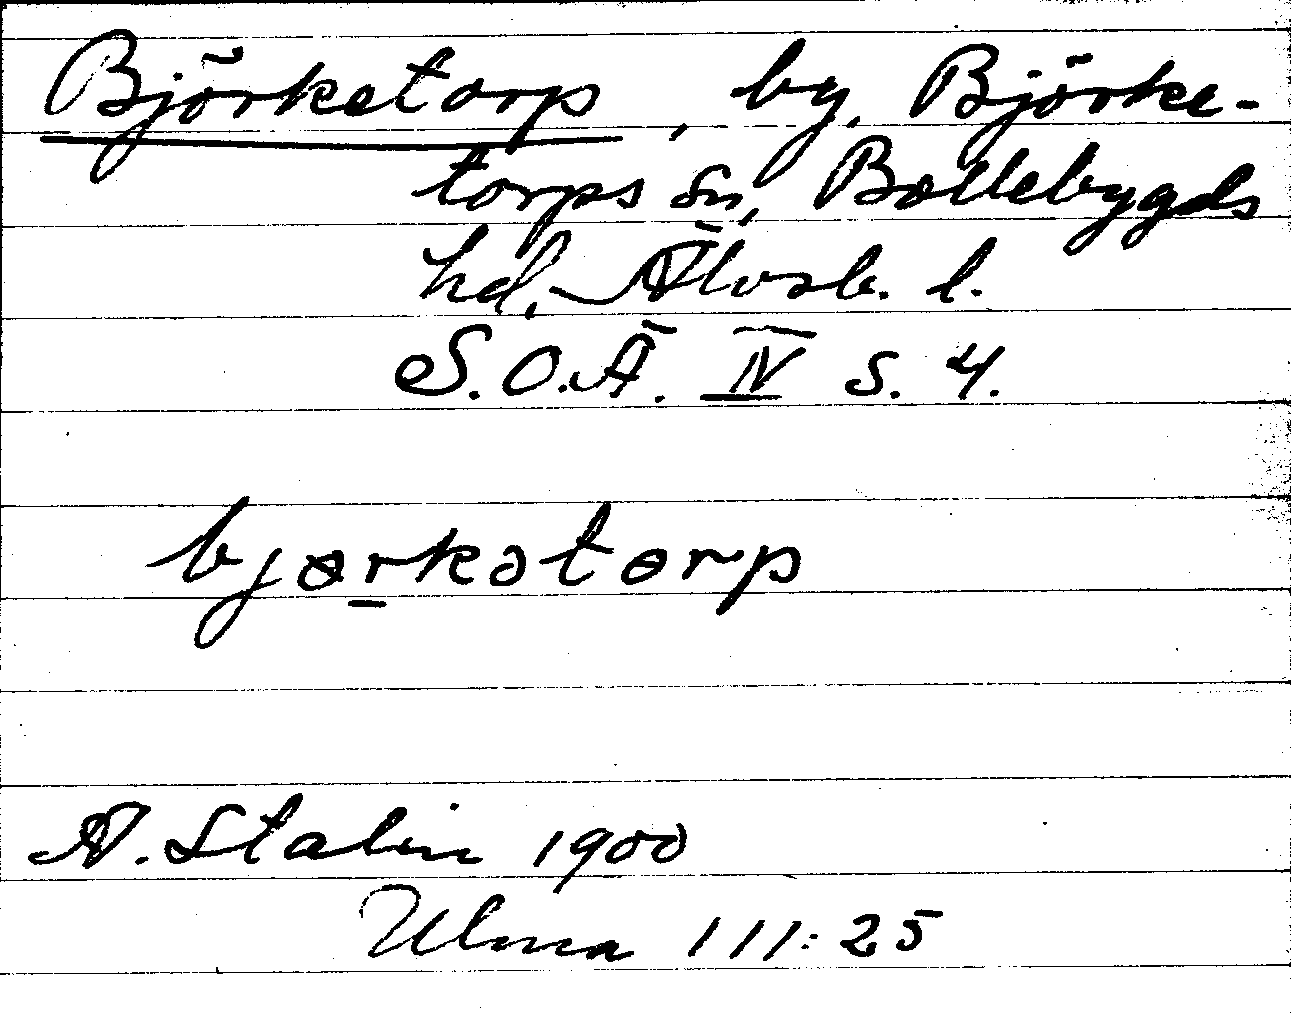 Björketorp, by, Björke-
torps sn, Bollebygds
hd, Älvsb. l.
S.O.Ä. IV s. 4.
bjɵrkətɵrp
A. Stalin 1900
Ulma 111:25